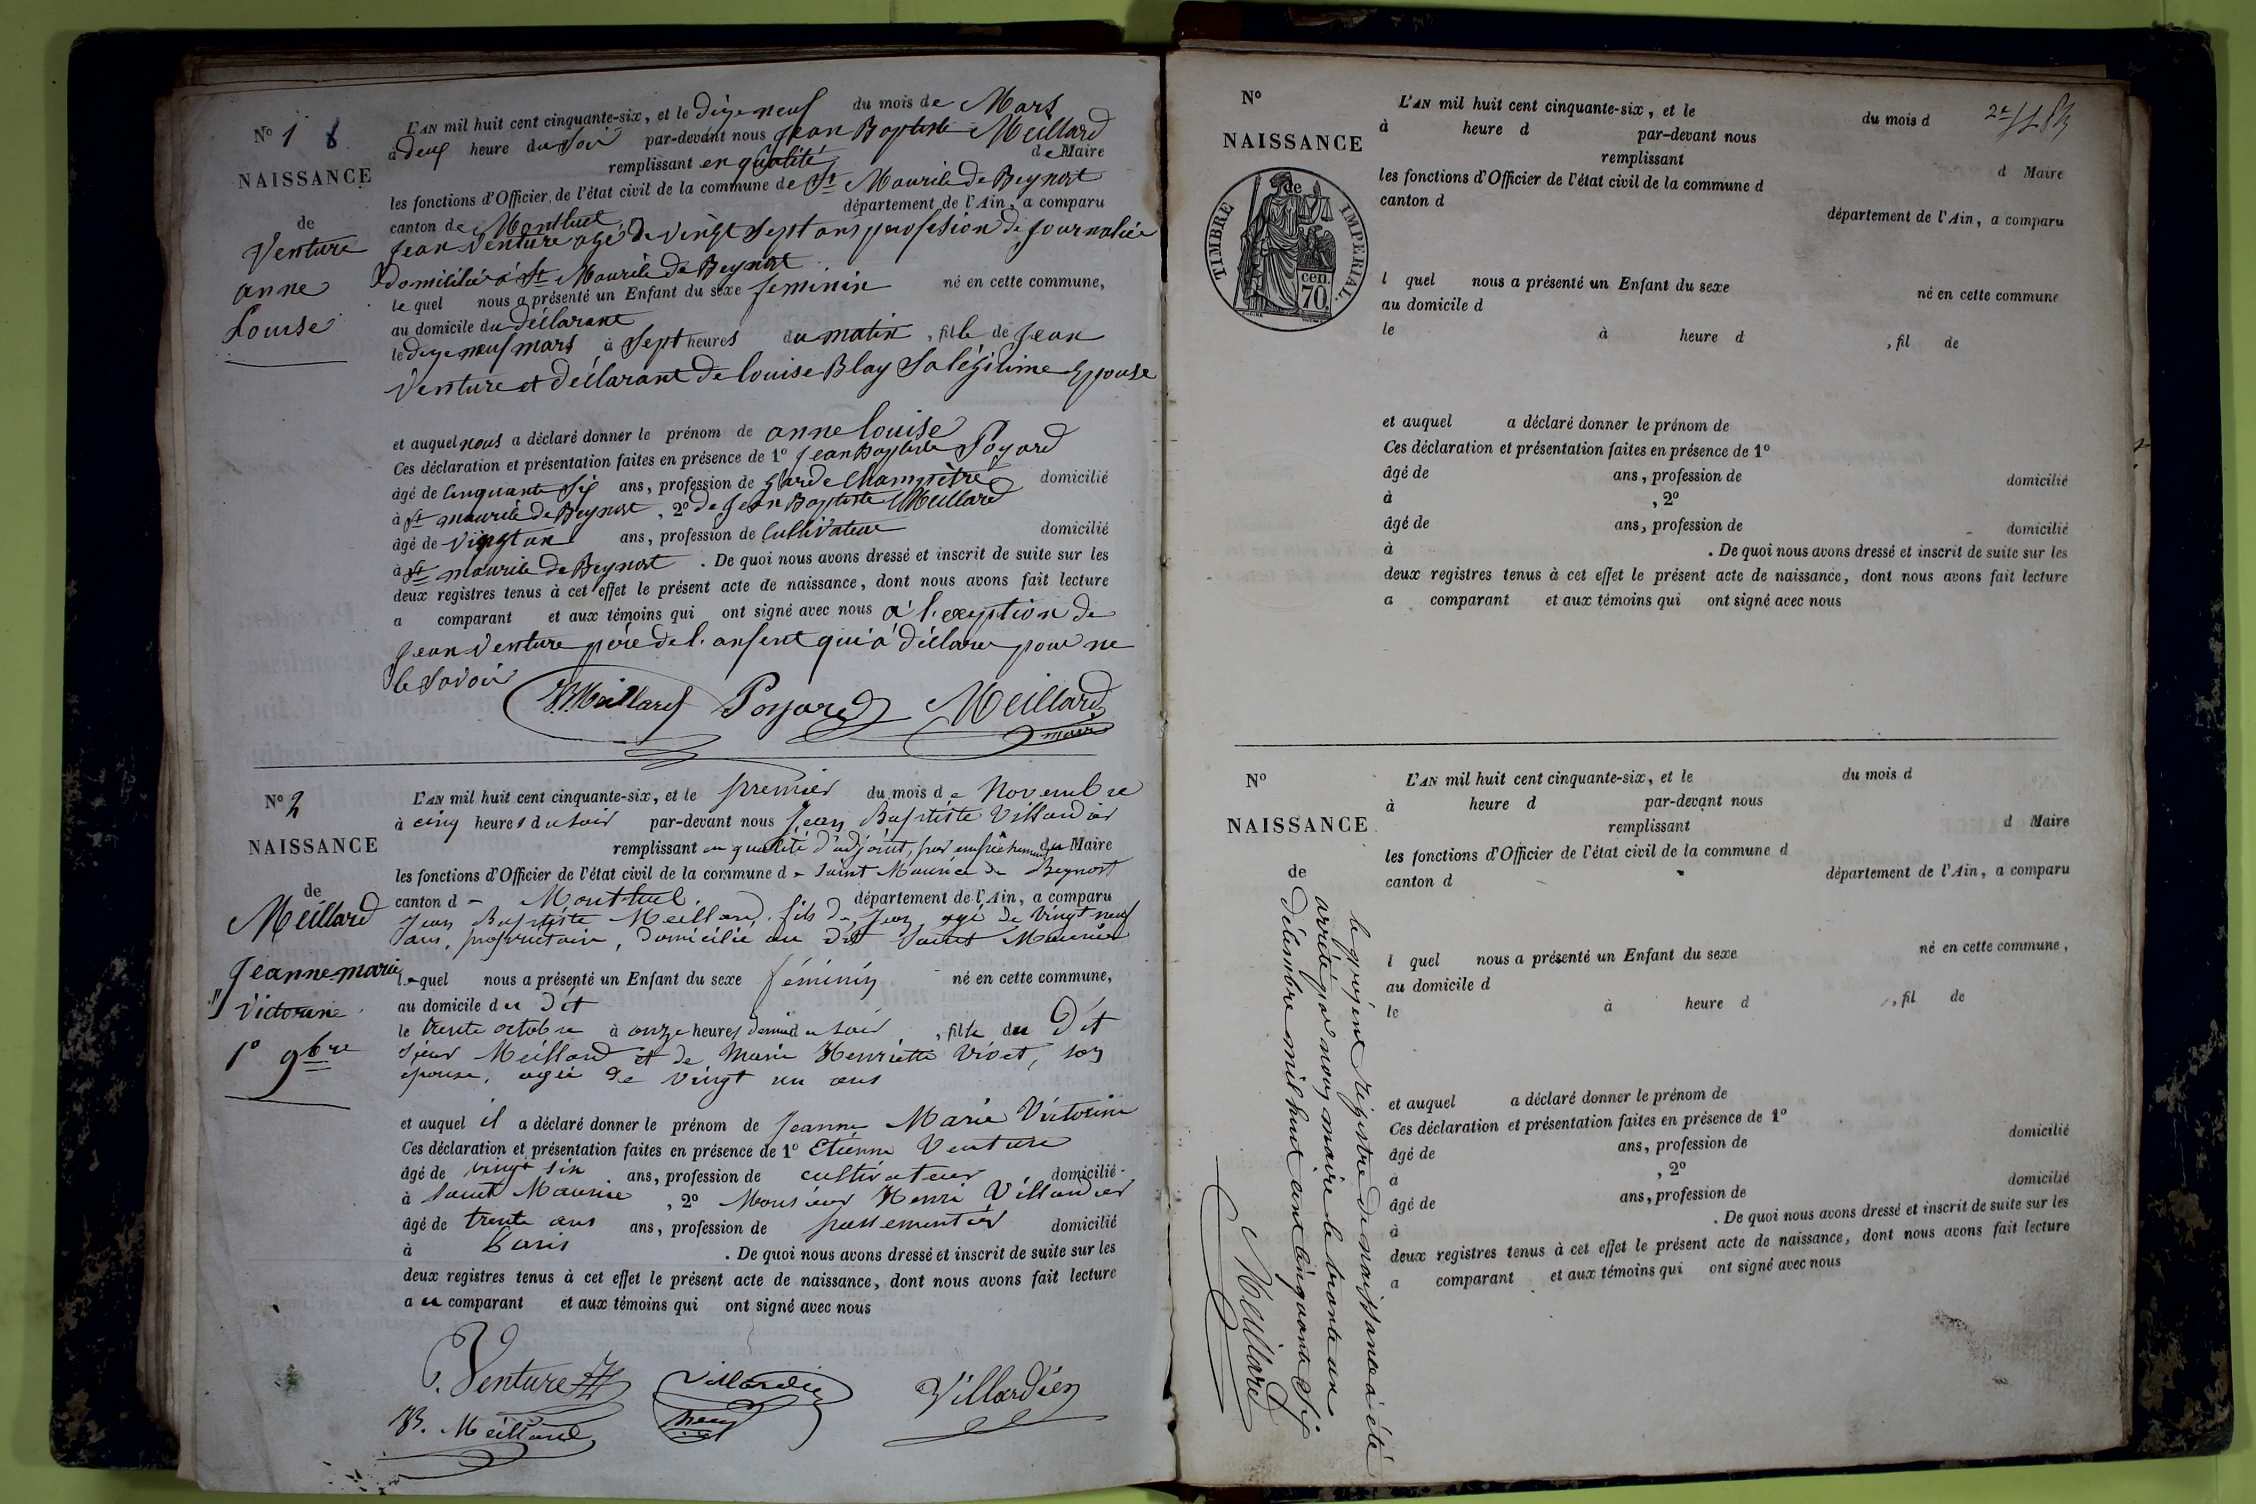 N° 1 8
NAISSANCE
de
Venture
anne
Louise
L'AN mil huit cent cinquante-six, et le dize neuf du mois de Mars
à deux heure du soir par-devant nous Jean Baptiste Meillard
remplissant en qualité de Maire
les fonctions d'Officier de l'état civil de la commune de St Maurile de Beynost
canton de Montluel département de l'Ain, a comparu
Jean Venture agé de vingt sept ans profession de journalié
domicilié à St Maurile de Beynost
le quel nous a présenté un Enfant du sexe feminin né en cette commune,
au domicile du déclarant
le dize neuf mars à sept heures du matin, fille de Jean
Venture et déclarant de louise Blay sa légitime Epouse
et auquel nous a déclaré donner le prénom de anne louise
Ces déclaration et présentation faites en présence de 1° Jean Baptiste Poyard
âgé de cinquante six ans, profession de garde champètre domicilié
à St maurile de Beynost, 2° de Jean Baptiste Meillard
âgé de vingt un ans, profession de cultivateur domicilié
à St maurile de Beynost. De quoi nous avons dressé et inscrit de suite sur les
deux registres tenus à cet effet le présent acte de naissance, dont nous avons fait lecture
a comparant et aux témoins qui ont signé avec nous à l'exeption de
Jean Venture père de l'anfent qui a déclaré pour ne
le savoir
JB Meillard Poyard Meillard
maire
N° 2
NAISSANCE
de
Meillard
Jeanne marie
Victorine
1° 9bre
L'AN mil huit cent cinquante-six, et le premier du mois de Novembre
à cinq heures du soir par-devant nous Jean Baptiste Villardier
remplissant en qualité d'adjoint, par empêchement du Maire
les fonctions d'Officier de l'état civil de la commune de Saint Maurice de Beynost
canton de Montluel département de l'Ain, a comparu
Jean Baptiste Meillard fils de Jean agé de vingt neuf
ans, propriétaire, domicilié au dit Saint Maurice
lequel nous a présenté un Enfant du sexe féminin né en cette commune,
au domicile du dit
le trente octobre à onze heures demi du soir, fille du dit
sieur Meillard et de Marie Henriette Vivet, son
epouse, agée de vingt un ans
et auquel il a déclaré donner le prénom de Jeanne Marie Victorine
Ces déclaration et présentation faites en présence de 1° Etienne Venture
âgé de vingt six ans, profession de cultivateur domicilié
à Saint Maurice, 2° Monsieur Henri Villardier
âgé de trente ans ans, profession de passementier domicilié
à Paris. De quoi nous avons dressé et inscrit de suite sur les
deux registres tenus à cet effet le présent acte de naissance, dont nous avons fait lecture
au comparant et aux témoins qui ont signé avec nous
Venture Villardier Villardier
JB. Meillard henry
N°
NAISSANCE
de
TIMBRE IMPERIAL.
70 cen.
L'AN mil huit cent cinquante-six, et le du mois d
à heure d par-devant nous
remplissant d Maire
les fonctions d'Officier de l'état civil de la commune d
canton d département de l'Ain, a comparu
l quel nous a présenté un Enfant du sexe né en cette commune
au domicile d
le à heure d , fil de
et auquel a déclaré donner le prénom de
Ces déclaration et présentation faites en présence de 1°
âgé de ans, profession de domicilié
à , 2°
âgé de ans, profession de domicilié
à . De quoi nous avons dressé et inscrit de suite sur les
deux registres tenus à cet effet le présent acte de naissance, dont nous avons fait lecture
a comparant et aux témoins qui ont signé acec nous
N°
NAISSANCE
de
L'AN mil huit cent cinquante-six, et le du mois d
à heure d par-devant nous
remplissant d Maire
les fonctions d'Officier de l'état civil de la commune d
canton d département de l'Ain, a comparu
l quel nous a présenté un Enfant du sexe né en cette commune,
au domicile d
le à heure d , fil de
et auquel a déclaré donner le prénom de
Ces déclaration et présentation faites en présence de 1°
âgé de ans, profession de domicilié
à , 2°
âgé de ans, profession de domicilié
à . De quoi nous avons dressé et inscrit de suite sur les
deux registres tenus à cet effet le présent acte de naissance, dont nous avons fait lecture
a comparant et aux témoins qui ont signé avec nous
le présent régistre de naissance a été
arrêté par nous maire le trante un
délambre mil huit cent cinquante six
Meillard